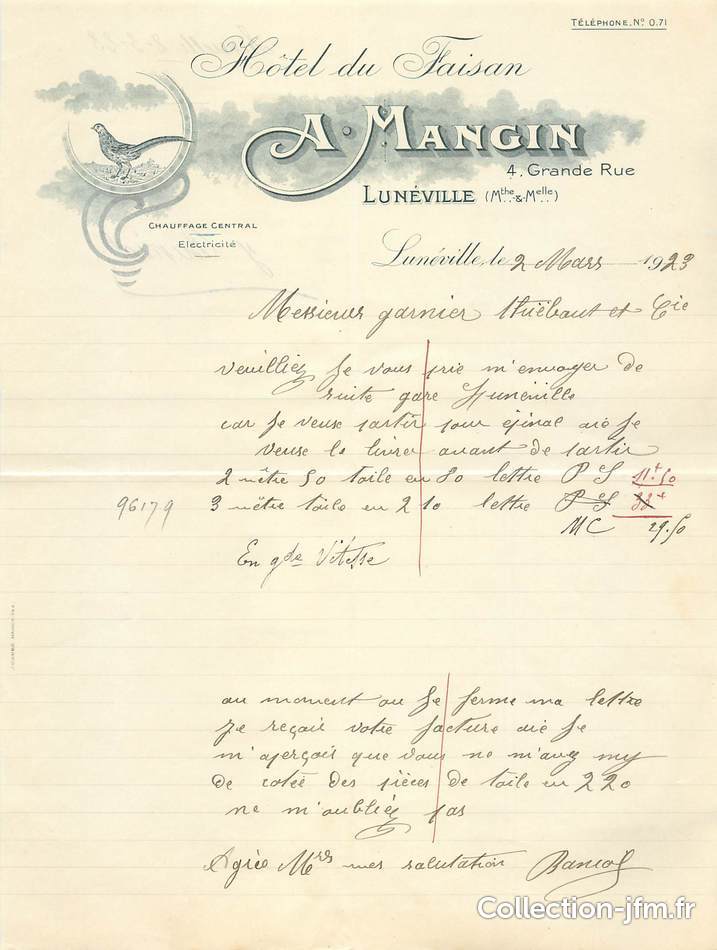 TÉLÉPHONE, Nº 0.71
Hôtel du Faisan
A. MANGIN
4, Grande Rue
LUNÉVILLE (Mthe & Melle)
CHAUFFAGE CENTRAL
Electricité
Lunéville, le 2 Mars 1923
Messieurs garnier thiébaut et Cie
veuilliez Je vous prie m'envoyer de
suite gare Lunéville
car Je veuse partir pour épinal ou Je
veuse le livrer avant de partir
2 mêtre 50 toile en 80 lettre P S 11+50
96179 3 mêtre toile en 2 10 lettre P S 33+
MC 29.50
En gde Vitesse
au moment ou Je ferme ma lettre
Je reçoit votre facture ou Je
m'aperçois que vous ne m'avez my
de cotée des pièces de toile en 220
ne m'oubliéz pas
Agréé Mrs mes salutation
Collection-jfm.fr